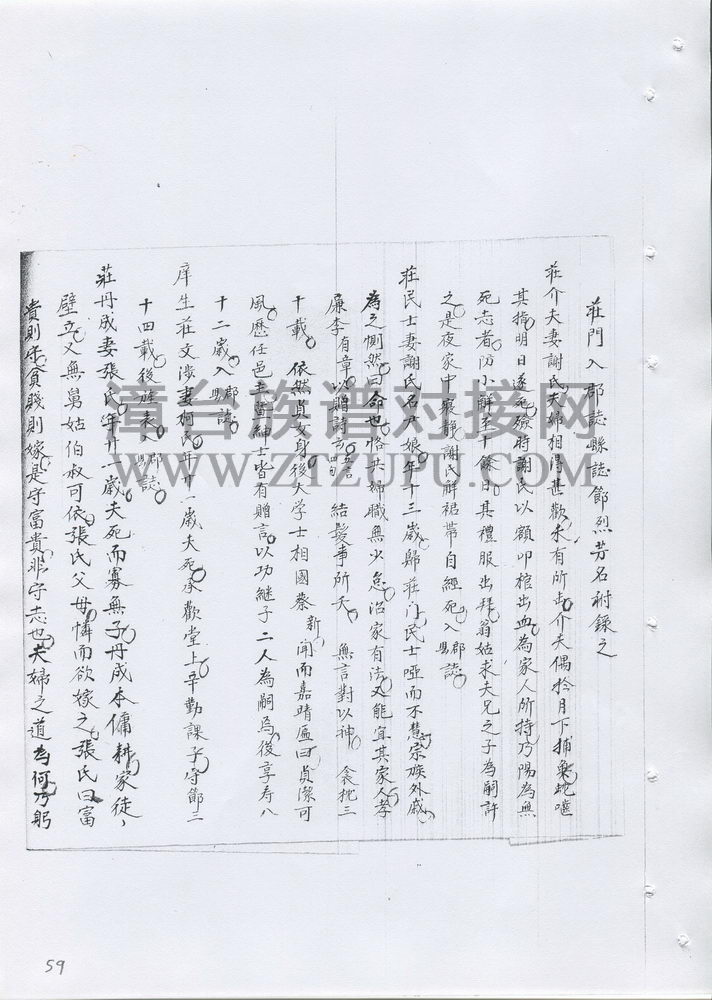 莊門入郡誌縣誌節烈芳名附錄之
莊介夫妻謝氏夫婦相得甚歡未有所出介夫偶於月下捕梟蛇噬
其指明日遂死殮時謝氏以額叩棺出血為家人所持乃陽為無
死志者防小懈至十餘日具禮服出拜翁姑求夫兄之子為嗣許
之是夜家中寂靜謝氏解裙帶自經死入郡縣誌
莊民士妻謝氏名 娘年十三歲歸莊門民士啞而不慧宗族外戚
為之惻然曰命也恪共婦職無少怠治家有法又能宜其家人孝
廉李有章以贈詩五言四句 結髮事所天 無言對以神 衾枕三
十載 依然貞女身後大学士相國蔡新聞而嘉靖匾曰貞潔可
風歷任邑主暨紳士皆有贈言以功繼子二人為嗣焉後享寿八
十二歲入郡縣誌
庠生莊文涉妻柯氏年廿一歲夫死承歡堂上辛勤課子守節三
十四載後旌表入郡縣誌
莊丹成妻張氏年廿一歲夫死而寡無子丹成本傭耕家徒
壁立又無舅姑伯叔可依張氏父母憐而欲嫁之張氏曰富
貴則守貧賤則嫁是守富貴非守志也夫婦之道為何乃躬
漳台族谱对接网
WWW.ZTZUPU.COM
59